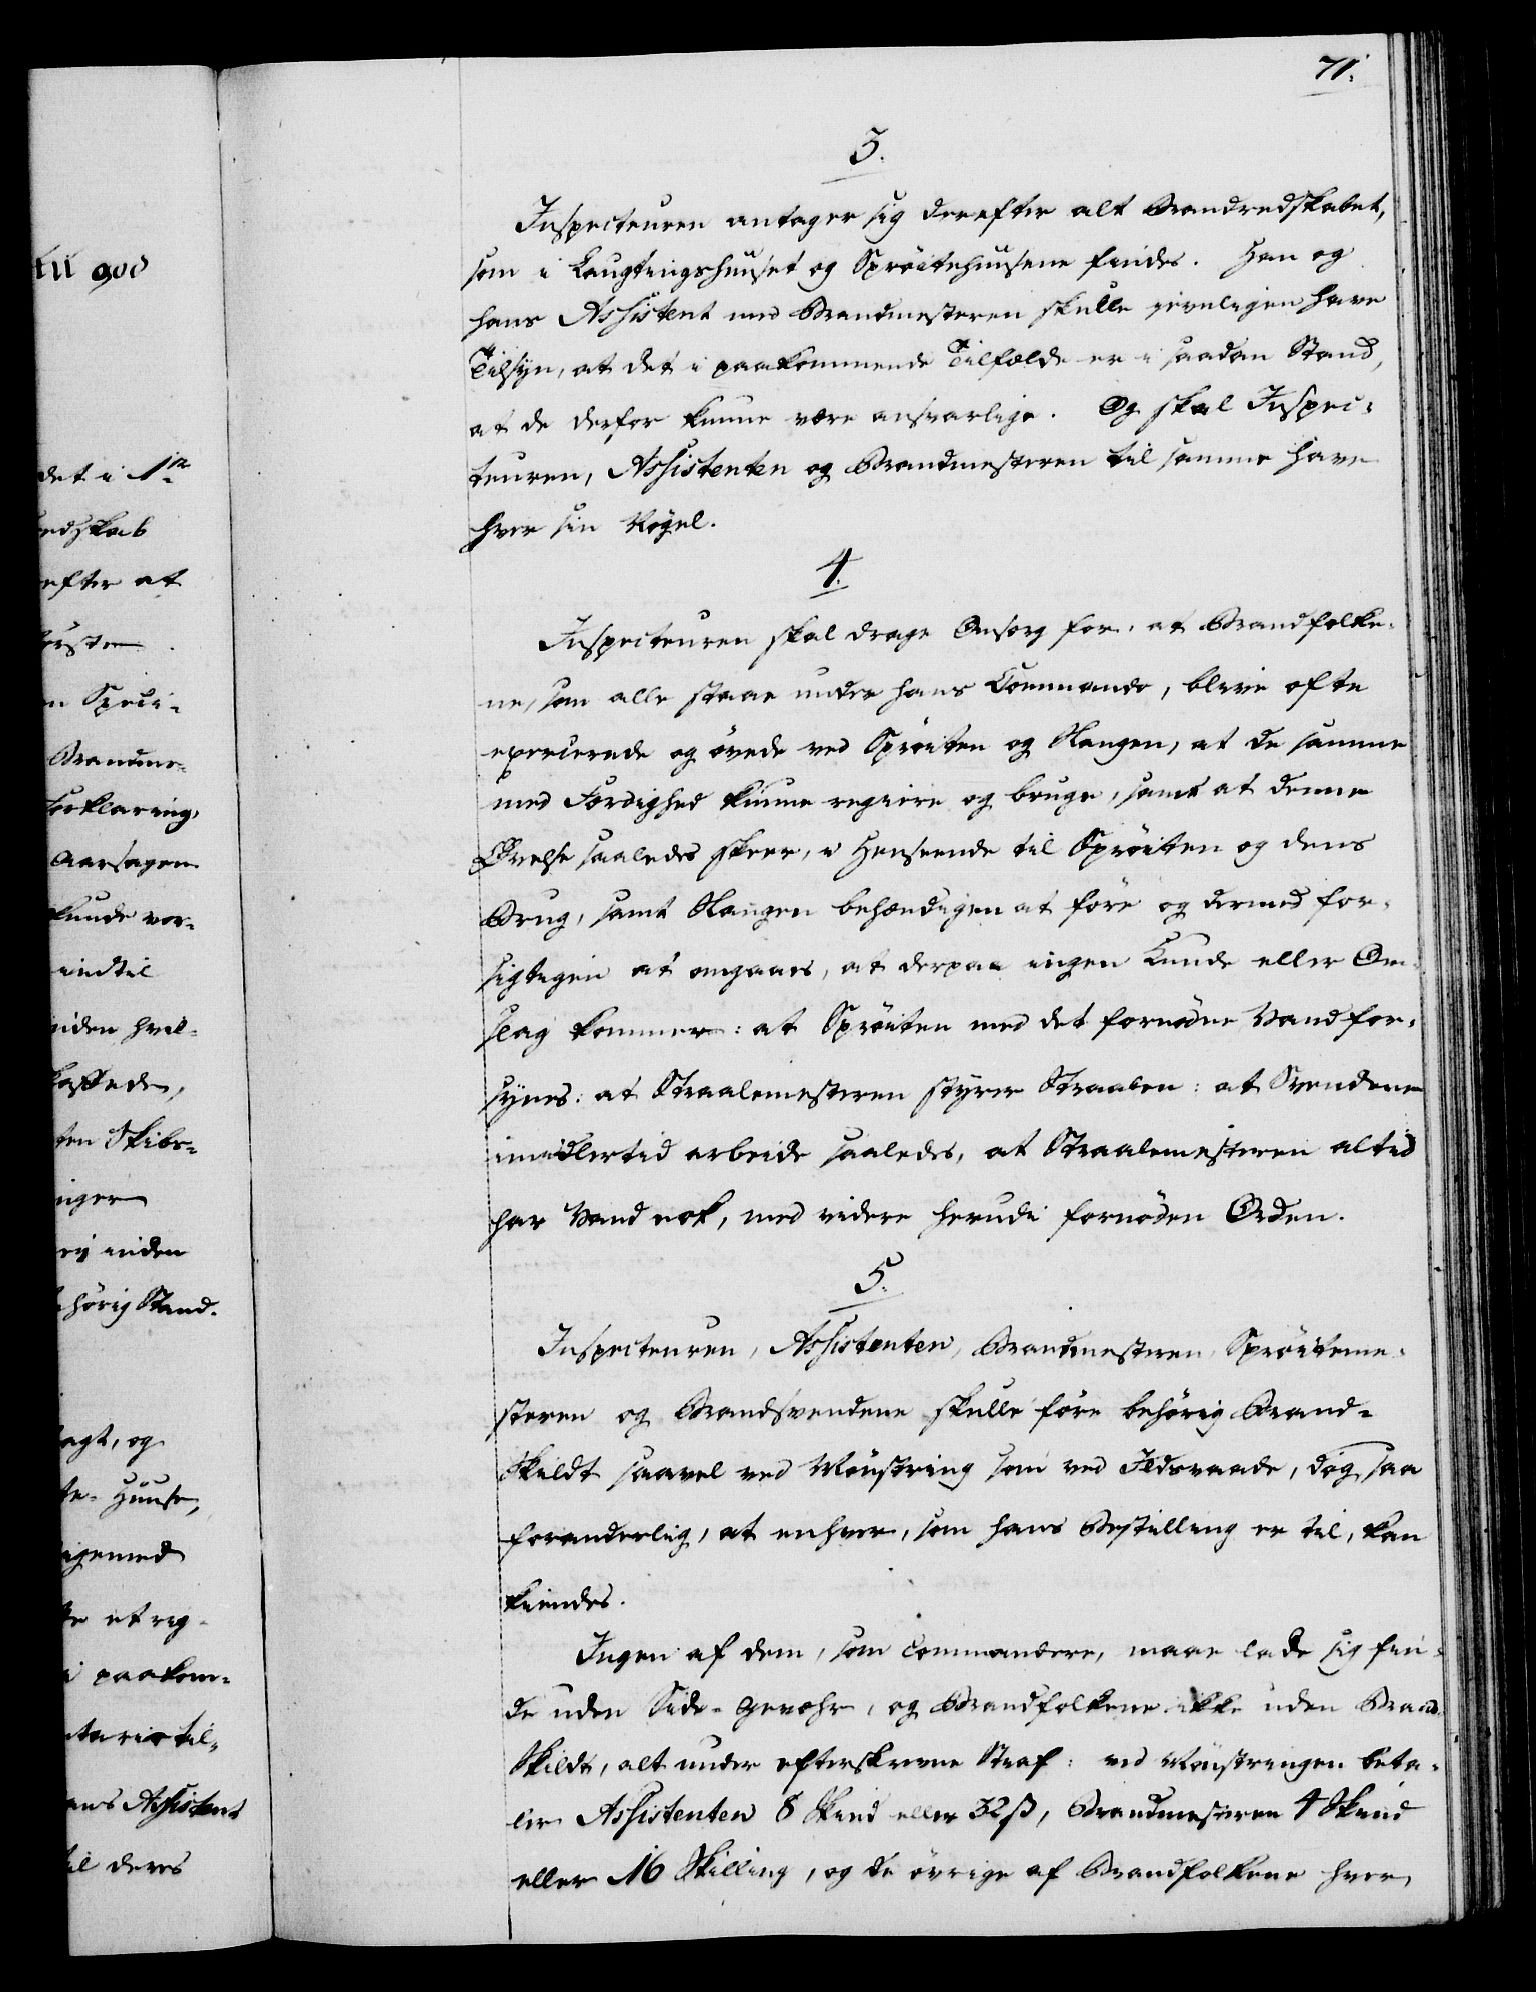 71.
3.
Inspecteuren antager sig derefter alt Brandredskabet,
som i Laugtingshuuset og Sprøitehuusene findes. Han og
hans Assistent med Brandmesteren skulle jevnligen have
Tilsyn, at det i paakommende Tilfælde er i saadan Stand,
at de derfor kunne være ansvarlige. Og skal Inspec-
teuren, Assistenten og Brandmesteren til samme have
hver sin Nøgel.
4.
Inspecteuren skal drage Omsorg for, at Brandfolke-
ne, som alle staae under hans Commando, blive ofte
exercerede og øvede ved Sprøiten og Slangen, at de samme
med Færdighed kunne regiere og bruge, samt at denne
Øvelse saaledes skeer, i Henseende til Sprøiten og dens
Brug, samt Slangen behændigen at føre og dermed for-
sigtigen at omgaaes, at derpaa ingen Lunde eller Om-
slag kommer: at Sprøiten med det fornødne Vand for-
synes: at Straalemesteren styrer Straalen: at Svendene
imidlertid arbeide saaledes, at Straalemesteren altid
har Vand nok, med videre herudi fornøden Orden.
5.
Inspecteuren, Assistenten, Brandmesteren, Sprøiteme-
steren og Brandsvendene skulle føre behørig Brand-
Skildt saavel ved Mønstring som ved Ildsvaade, dog saa
foranderlig, at enhver, som hans Bestilling er til, kan
kiendes.
Ingen af dem, som commandere, maae lade sig fin-
de uden Side-Gevæhr, og Brandfolkene ikke uden Brand-
Skildt, alt under efterskrevne Straf: ved Mønstringen beta-
ler Assistenten 8 Skind eller 32 ß, Brandmesteren 4 Skind
eller 16 Skilling, og de øvrige af Brandfolkene hver
det i
redskab
efter at
n Speci-
Brandme-
forklaring,
Aarsagen
kunde vor-
indtil
inden hvil-
ten Skibs-
inger
ey inden
ehørig Stand.
agt, og
te-Huuse,
igemed
te et rig-
i paakom-
ntario til-
ans Assistent
til deres